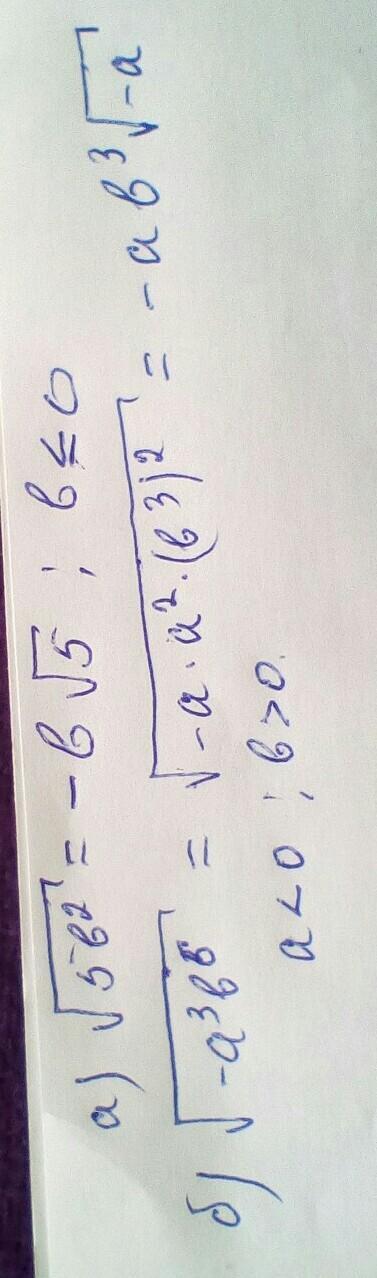 а) √5в² = -в√5 ; в ≤ 0
б) √-a³в⁶ = √-a·a²·(в³)² = -aв³√-a
a < 0 ; в > 0.